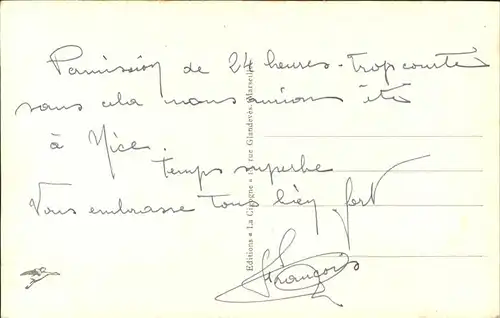 Permission de 24 heures - Trop courte
sans cela nous aurions été
à Nice.
Temps superbe
Vous embrasse tous bien fort
François
Editions « La Cigogne » rue Glandevès, Marseille